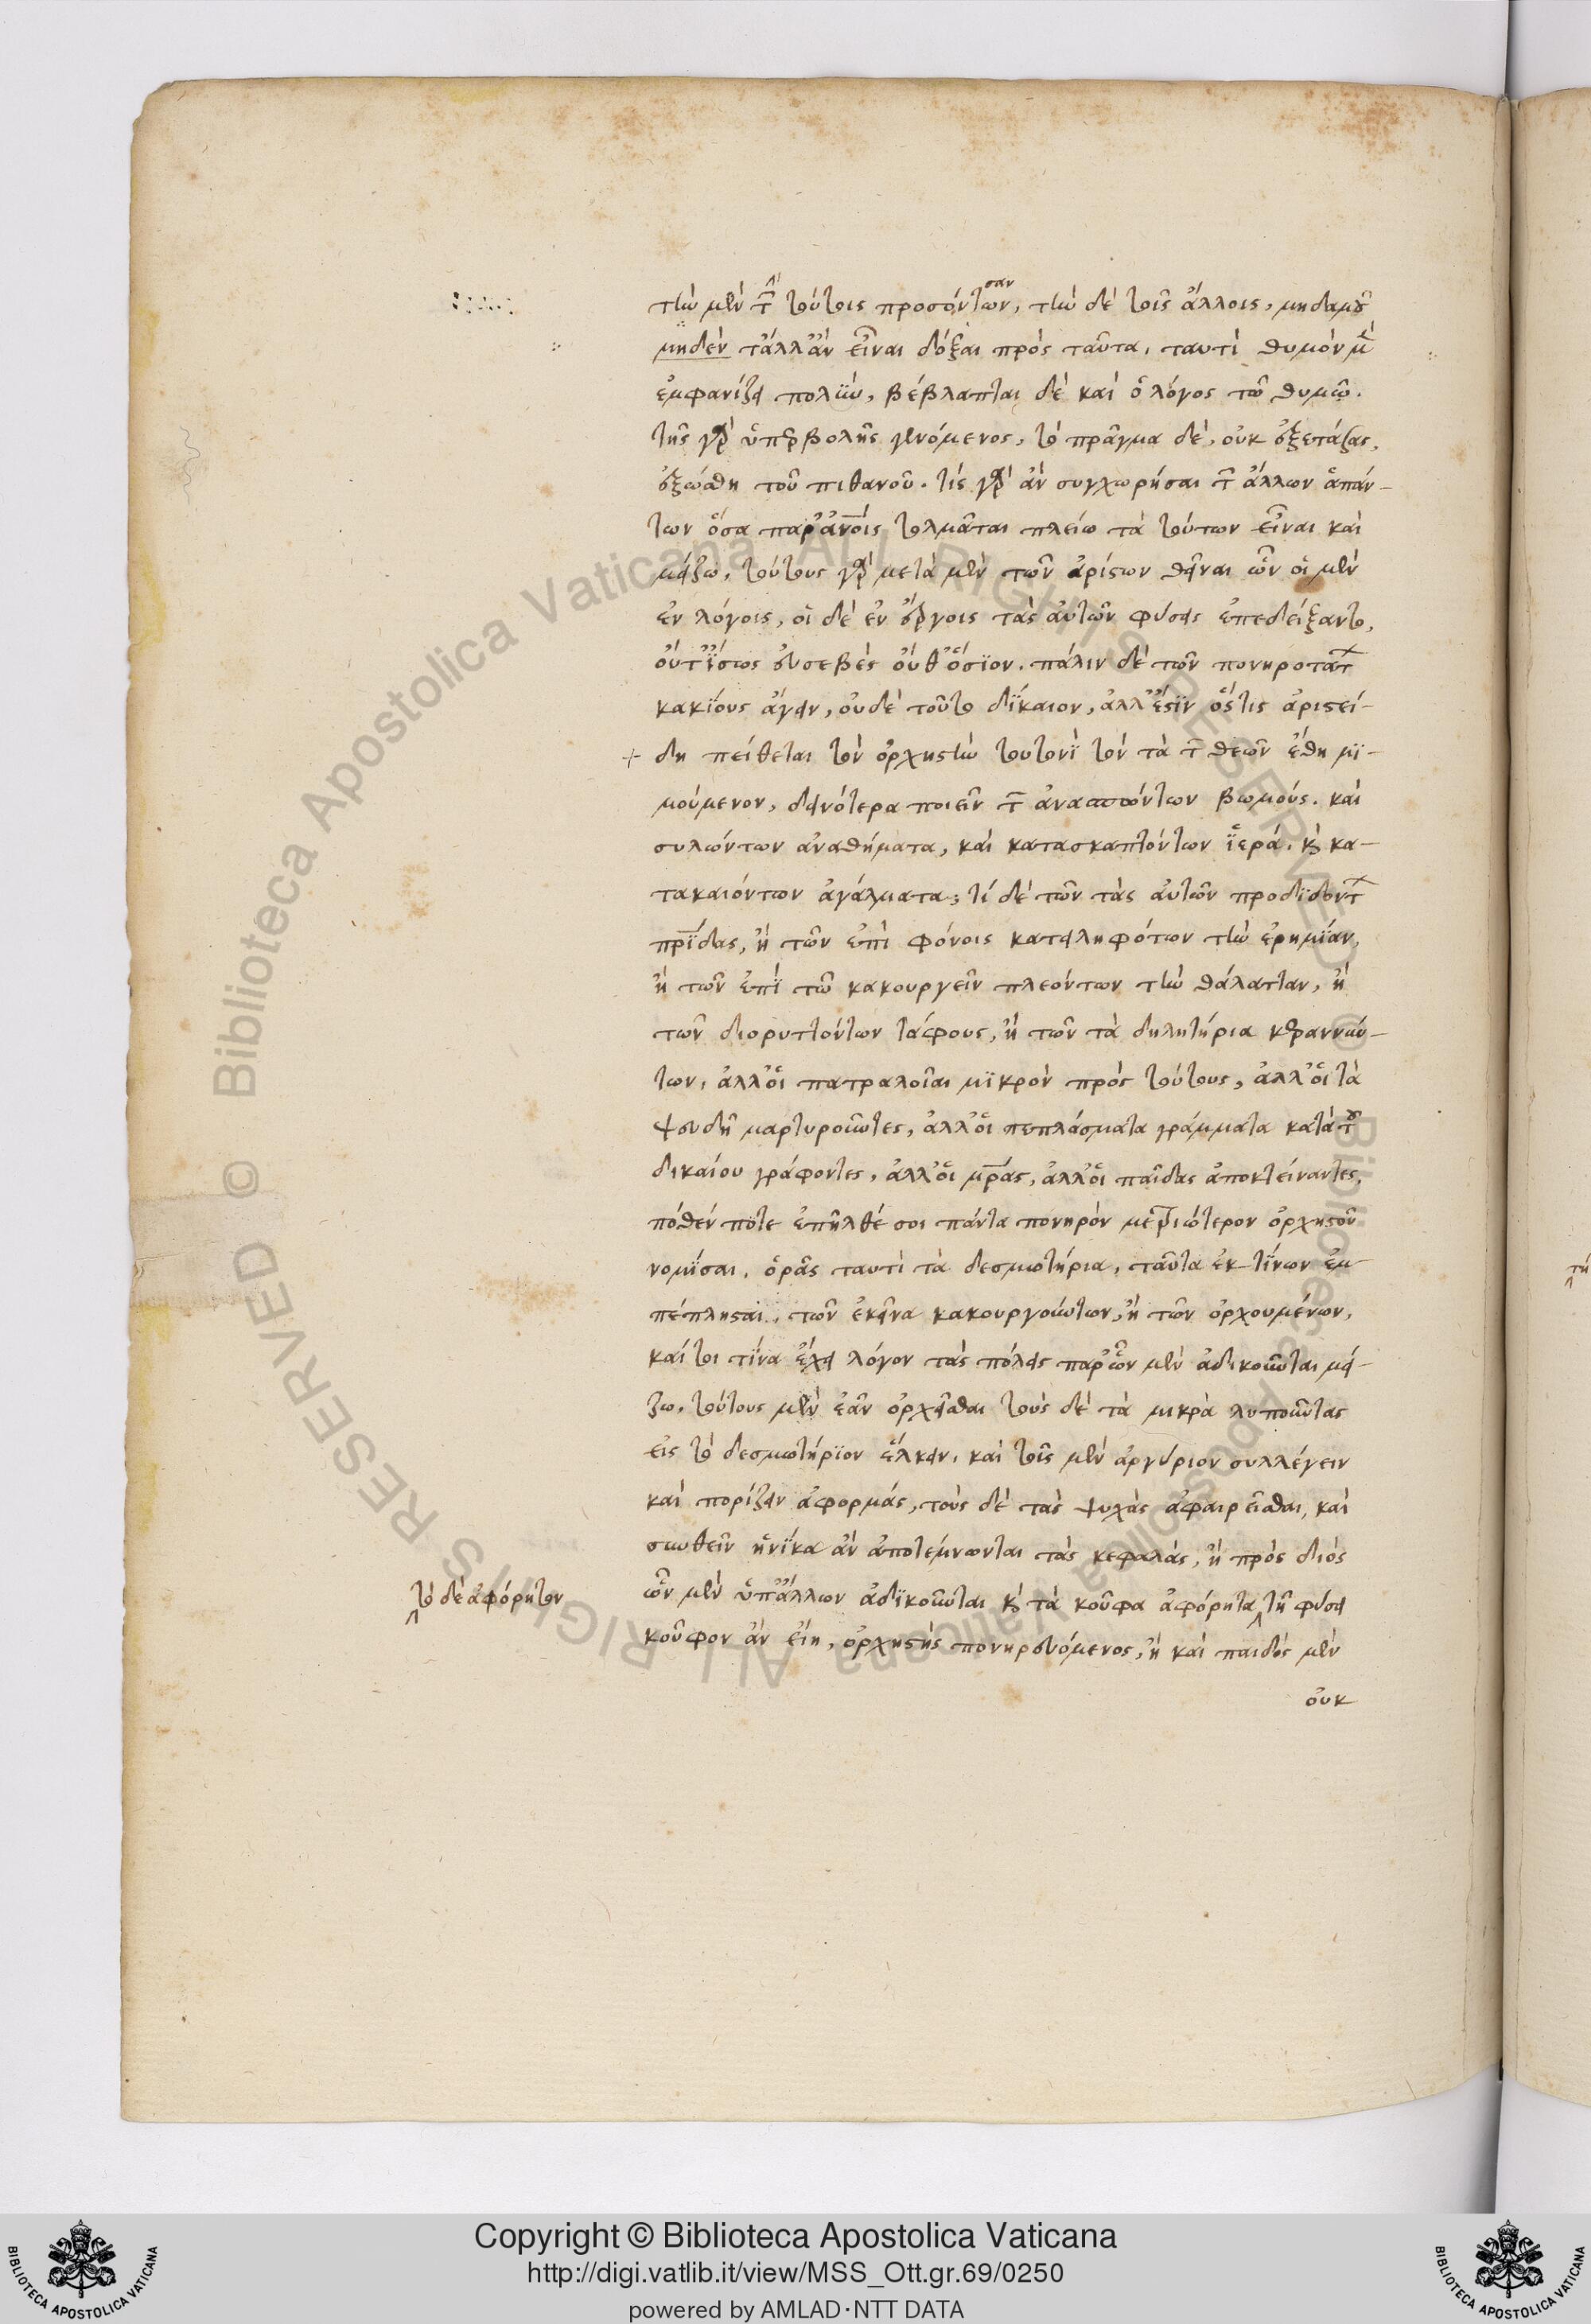 τὴν μὲν τ̑ τούτοις προσόντων σαν, τὴν δὲ τοῖς ἄλλοις, μηδαμοῦ
μηδὲν τἄλλ' ἂν εἶναι δόξαι πρὸς ταῦτα, ταυτὶ θυμὸν μὲν
ἐμφανίζει πολὺν, βέβλαπται δὲ καὶ ὁ λόγος τῷ θυμῷ.
τῆς γὰρ ὑπερβολῆς γενόμενος, τὸ πρᾶγμα δὲ, οὐκ ἐξετάσας,
ἐξεώσθη τοῦ πιθανοῦ. τίς γὰρ ἂν συγχωρήσαι τῶν ἄλλων ἁπάν-
των ὅσα παρ' ἀνοις τολμᾶται πλείω τὰ τούτων εἶναι καὶ
μείζω, τούτους γὰρ μετὰ μὲν τῶν ἀρίστων θεῖναι ὧν οἱ μὲν
ἐν λόγοις, οἱ δὲ ἐν ἔργοις τὰς αὐτῶν φύσεις ἐπεδείξαντο,
οὔτ' ἴσως εὐσεβὲς οὔθ' ὅσιον. πάλιν δὲ τῶν πονηροτάτων
κακίους ἄγειν, οὐδὲ τοῦτο δίκαιον, ἀλλ' ἔστιν ὅστις ἀριστεί-
δη πείθεται τὸν ὀρχηστὴν τουτονὶ τὸν τὰ τῶν θεῶν ἔθη μι-
μούμενον, δεινότερα ποιεῖν τῶν ἀνασπώντων βωμούς. καὶ
συλώντων ἀναθήματα, καὶ κατασκαπτόντων ἱερά. καὶ κα-
τακαιόντων ἀγάλματα; τί δὲ τῶν τὰς αὐτῶν προδιδόντων
πρίδας, ἢ τῶν ἐπὶ φόνοις κατειληφότων τὴν ἐρημίαν,
ἢ τῶν ἐπὶ τῷ κακουργεῖν πλεόντων τὴν θάλατταν, ἢ
τῶν διορυττόντων τάφους, ἢ τῶν τὰ δηλητήρια κεραννύν-
των, ἀλλ' οἱ πατραλοῖαι μικρὸν πρὸς τούτους, ἀλλ' οἱ τὰ
ψευδῆ μαρτυροῦντες, ἀλλ' οἱ πεπλάσματα γράμματα κατὰ τοῦ
δικαίου γράφοντες, ἀλλ' οἱ μρας, ἀλλ' οἱ παῖδας ἀποκτείναντες,
πόθεν ποτε ἐπῆλθέ σοι πάντα πονηρὸν μετριώτερον ὀρχηστοῦ
νομίσαι. ὁρᾷς ταυτὶ τὰ δεσμωτήρια, ταῦτα ἐκ τίνων ἐμ
πέπλησται. τῶν ἐκεῖνα κακουργούντων, ἢ τῶν ὀρχουμένων,
καίτοι τίνα ἔχει λόγον τὰς πόλεις παρ' ὧν μὲν ἀδικοῦνται μεί-
ζω. τούτους μὲν ἐᾶν ὀρχεῖσθαι τοὺς δὲ τὰ μικρὰ λυποῦντας
εἰς τὸ δεσμωτήριον ἕλκειν. καὶ τοῖς μὲν ἀργύριον συλλέγειν
καὶ πορίζειν ἀφορμάς, τοὺς δὲ τὰς ψυχὰς ἀφαιρεῖσθαι, καὶ
σιωθεῖν ἡνίκα ἂν ἀποτέμνωνται τὰς κεφαλάς, ἢ πρὸς διὸς
τὸ δὲ ἀφόρητον
ὧν μὲν ὑπ' ἄλλων ἀδικοῦνται καὶ τὰ κοῦφα ἀφόρητα τῇ φύσει
κοῦφον ἂν εἴη, ὀρχηστὴς πονηρευόμενος, ἢ καὶ παιδὸς μὲν
οὐκ
Copyright © Biblioteca Apostolica Vaticana
http://digi.vatlib.it/view/MSS_Ott.gr.69/0250
powered by AMLAD·NTT DATA